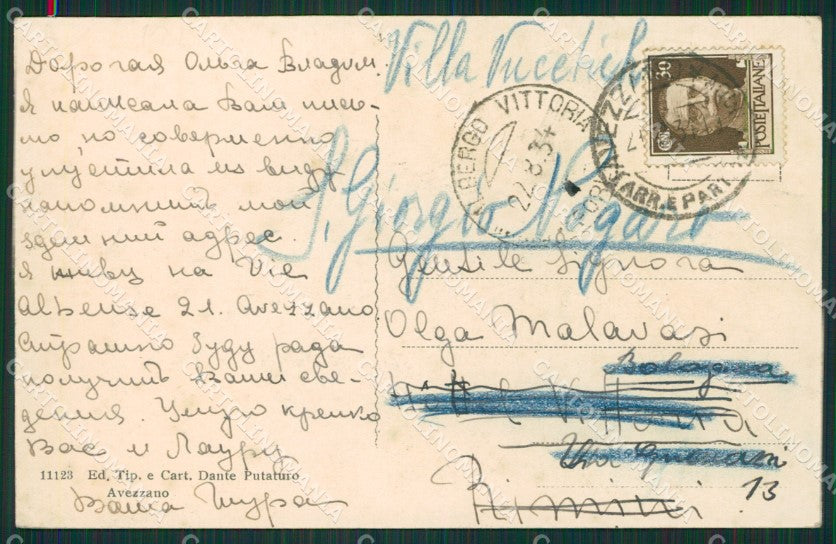 Дорогая Ольга Владим.
я написала Вам пись-
мо, но совершенно
упустила из виду
напомнить мой
здешний адрес.
я живу на Vie
Albense 21. Avezzano
Страшно буду рада
получить Ваши све-
дения. Целую крепко
Вас и Лауру
Ваша Шура
11123 Ed. Tip. e Cart. Dante Putaturo
Avezzano
Villa Vucetich
S. Giorgio Nogaro
ALBERGO VITTORIA
22.8.34
ARR. E PART
30
POSTE ITALIANE
Gentile Signora
Olga Malavasi
Bologna
Vittoria
Via
13
Rimini
CARTOLINOMANIA